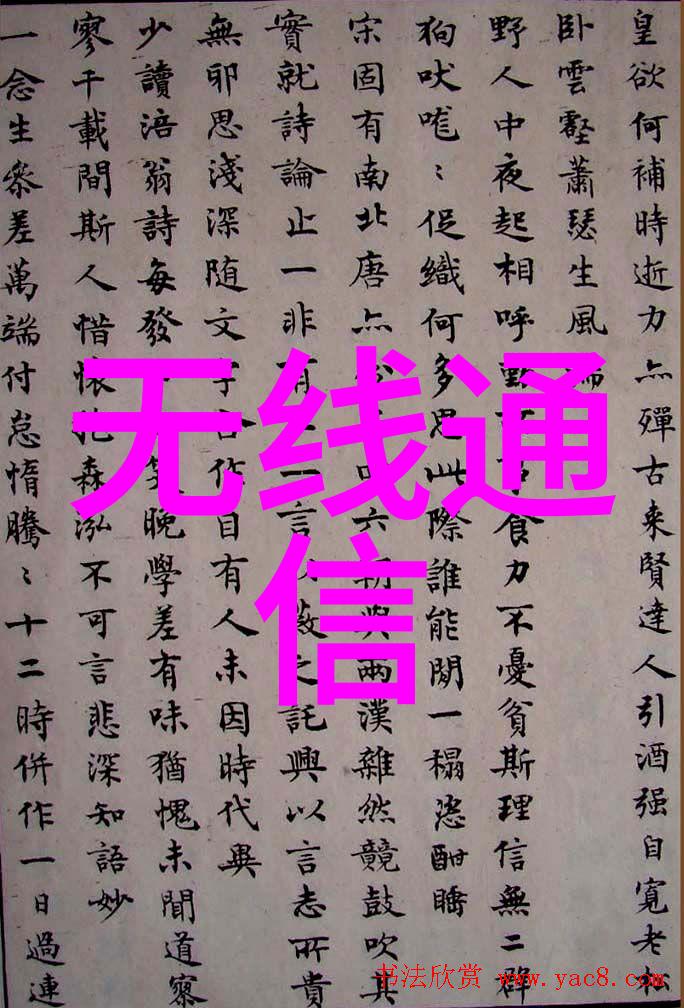 皇欲何補時逝力亦殫古来賢達人引酒强自寬老
卧雲壑蕭瑟生風
野人中夜起相呼食力不憂貧斯理信無二群
狗吠嘊〻促織何多思此際誰能閑一榻恣酣睡
宋固有南北唐亦六朝與兩漢雜然競鼓吹其
實就詩論止一非有一言以蔽之託興以言志所貴
無邪思淺深随文字各作自有人未因時代異
少讀涪翁詩每發笑晚學差有味猶愧未聞道察
寥千載間斯人惜懷抱森泓不可言悲深知語妙
一念生參差萬端付怠惰騰〻十二時併作一日過連
无线通
信
书法欣赏 www.yac8.com